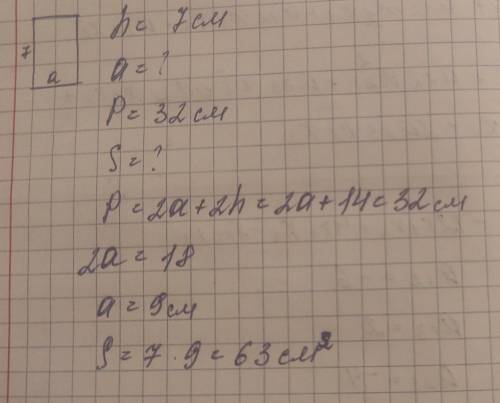 h = 7 см
7
a = ?
a
P = 32 см
S = ?
P = 2a + 2h = 2a + 14 = 32 см
2a = 18
a = 9 см
S = 7 · 9 = 63 см²